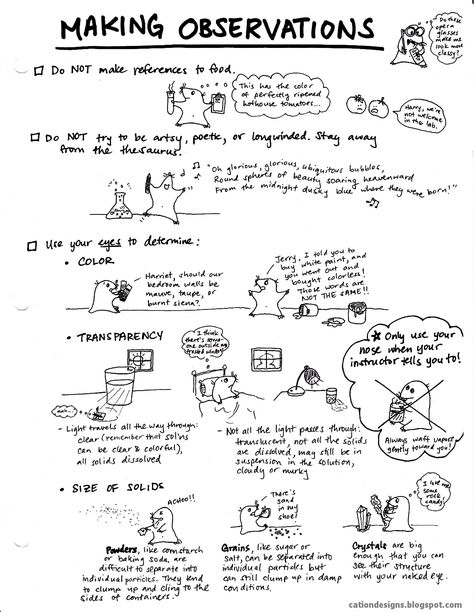 MAKING OBSERVATIONS
Do these
opera
glasses
make me
look more
classy?
Do NOT make references to food.
This has the color
of perfectly ripened
hothouse tomatoes...
Harry, we're
not welcome
in the lab.
Do NOT try to be artsy, poetic, or longwinded. Stay away
from the thesaurus.
"Oh glorious, glorious, ubiquitous bubbles,
Round spheres of beauty soaring heavenward
From the midnight dusky blue where they were born!"
Use your eyes to determine:
• COLOR
Harriet, should our
bedroom walls be
mauve, taupe, or
burnt siena?
Jerry, I told you to
buy white paint, and
you went out and
bought colorless!
Those words are
NOT THE SAME!!
• TRANSPARENCY
I think
there's some-
one outside my
frosted window!
Only use your
nose when your
instructor tells you to!
Always waft vapors
gently toward you!
- Light travels all the way through:
clear (remember that sol'ns
can be clear & colorful),
all solids dissolved
- Not all the light passes through:
translucent, not all the solids
are dissolved, may still be in
suspension in the solution,
cloudy or murky
• SIZE OF SOLIDS
ACHOO!!
There's
sand
in my
shoe!
I love me
some
rock
candy!
Powders, like cornstarch
or baking soda, are
difficult to separate into
individual particles. They tend
to clump up and cling to the
sides of containers.
Grains, like sugar or
salt, can be separated into
individual particles but
can still clump up in damp
conditions.
Crystals are big
enough that you can
see their structure
with your naked eye.
cationdesigns.blogspot.com